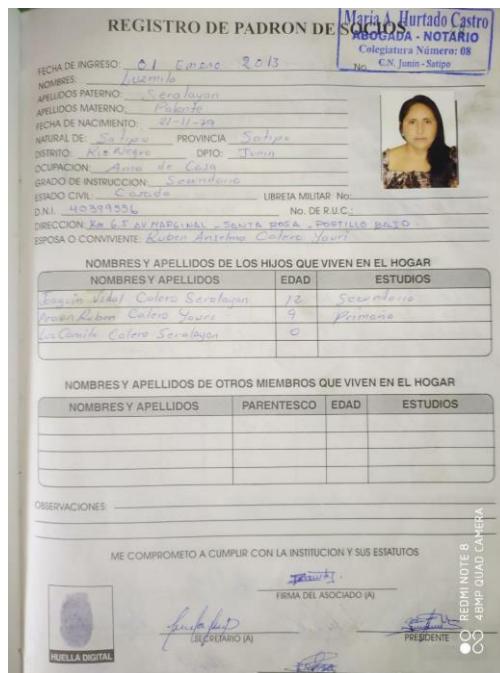 REGISTRO DE PADRON DE SOCIOS
Maria A. Hurtado Castro
ABOGADA - NOTARIO
Colegiatura Número: 08
C.N. Junín - Satipo
No.
FECHA DE INGRESO: 01 Enero 2013
NOMBRES: Luzmila
APELLIDOS PATERNO: Seralayan
APELLIDOS MATERNO:
FECHA DE NACIMIENTO: 21-11-79
NATURAL DE: Satipo PROVINCIA Satipo
DISTRITO: Rio Negro DPTO: Junin
OCUPACION: Ama de Casa
GRADO DE INSTRUCCION: Secundaria
ESTADO CIVIL: Casada LIBRETA MILITAR No:
D.N.I. 40399336 No. DE R.U.C.:
DIRECCION: Km 6.5 AV MARGINAL - SANTA ROSA - PORTILLO BAJO
ESPOSA O CONVIVIENTE: Ruben Anselmo Calero Yauri
NOMBRES Y APELLIDOS DE LOS HIJOS QUE VIVEN EN EL HOGAR
NOMBRES Y APELLIDOS EDAD ESTUDIOS
Joaquin Vidal Calero Seralayan 12 Secundaria
Ruben Calero 9 Primaria
Luz Camila Calero Seralayan 0
NOMBRES Y APELLIDOS DE OTROS MIEMBROS QUE VIVEN EN EL HOGAR
NOMBRES Y APELLIDOS PARENTESCO EDAD ESTUDIOS
OBSERVACIONES:
ME COMPROMETO A CUMPLIR CON LA INSTITUCION Y SUS ESTATUTOS
FIRMA DEL ASOCIADO (A)
SECRETARIO (A) PRESIDENTE
HUELLA DIGITAL
REDMI NOTE 8
48MP QUAD CAMERA